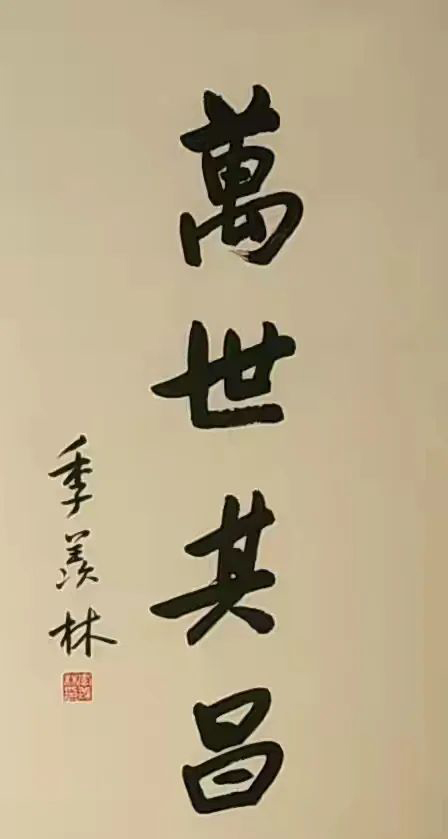 萬世其昌
季羨林